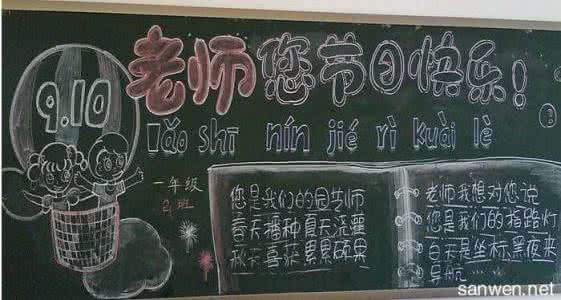 老师您节日快乐!
9.10
lǎo shī nín jié rì kuài lè
一年级
班
您是我们的园艺师
春天播种夏天浇灌
秋天喜获累累硕果
老师我想对您说
您是我们的指路灯
白天是坐标黑夜来
导航……
sanwen.net